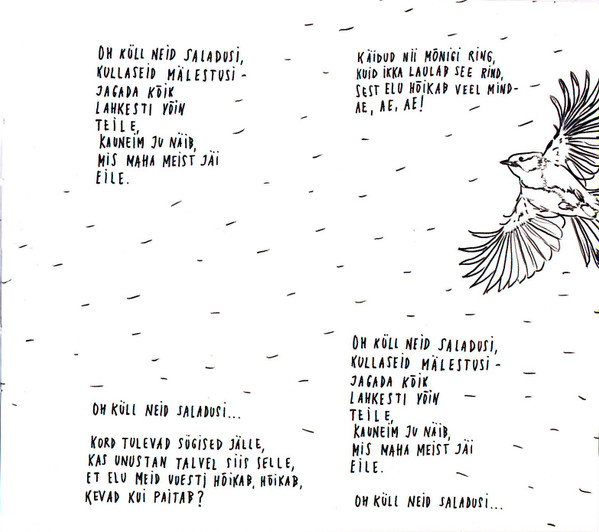 OH KÜLL NEID SALADUSI,
KULLASEID MÄLESTUSI -
JAGADA KÕIK
LAHKESTI VÕIN
TEILE,
KAUNEIM JU NÄIB,
MIS MAHA MEIST JÄI
EILE.
OH KÜLL NEID SALADUSI...
KORD TULEVAD SÜGISED JÄLLE,
KAS UNUSTAN TALVEL SIIS SELLE,
ET ELU MEID UUESTI HÕIKAB, HÕIKAB,
KEVAD KUI PAITAB?
KÄIDUD NII MÕNIGI RING,
KUID IKKA LAULAB SEE RIND,
SEST ELU HÕIKAB VEEL MIND-
AE, AE, AE!
OH KÜLL NEID SALADUSI,
KULLASEID MÄLESTUSI -
JAGADA KÕIK
LAHKESTI VÕIN
TEILE,
KAUNEIM JU NÄIB,
MIS MAHA MEIST JÄI
EILE.
OH KÜLL NEID SALADUSI...